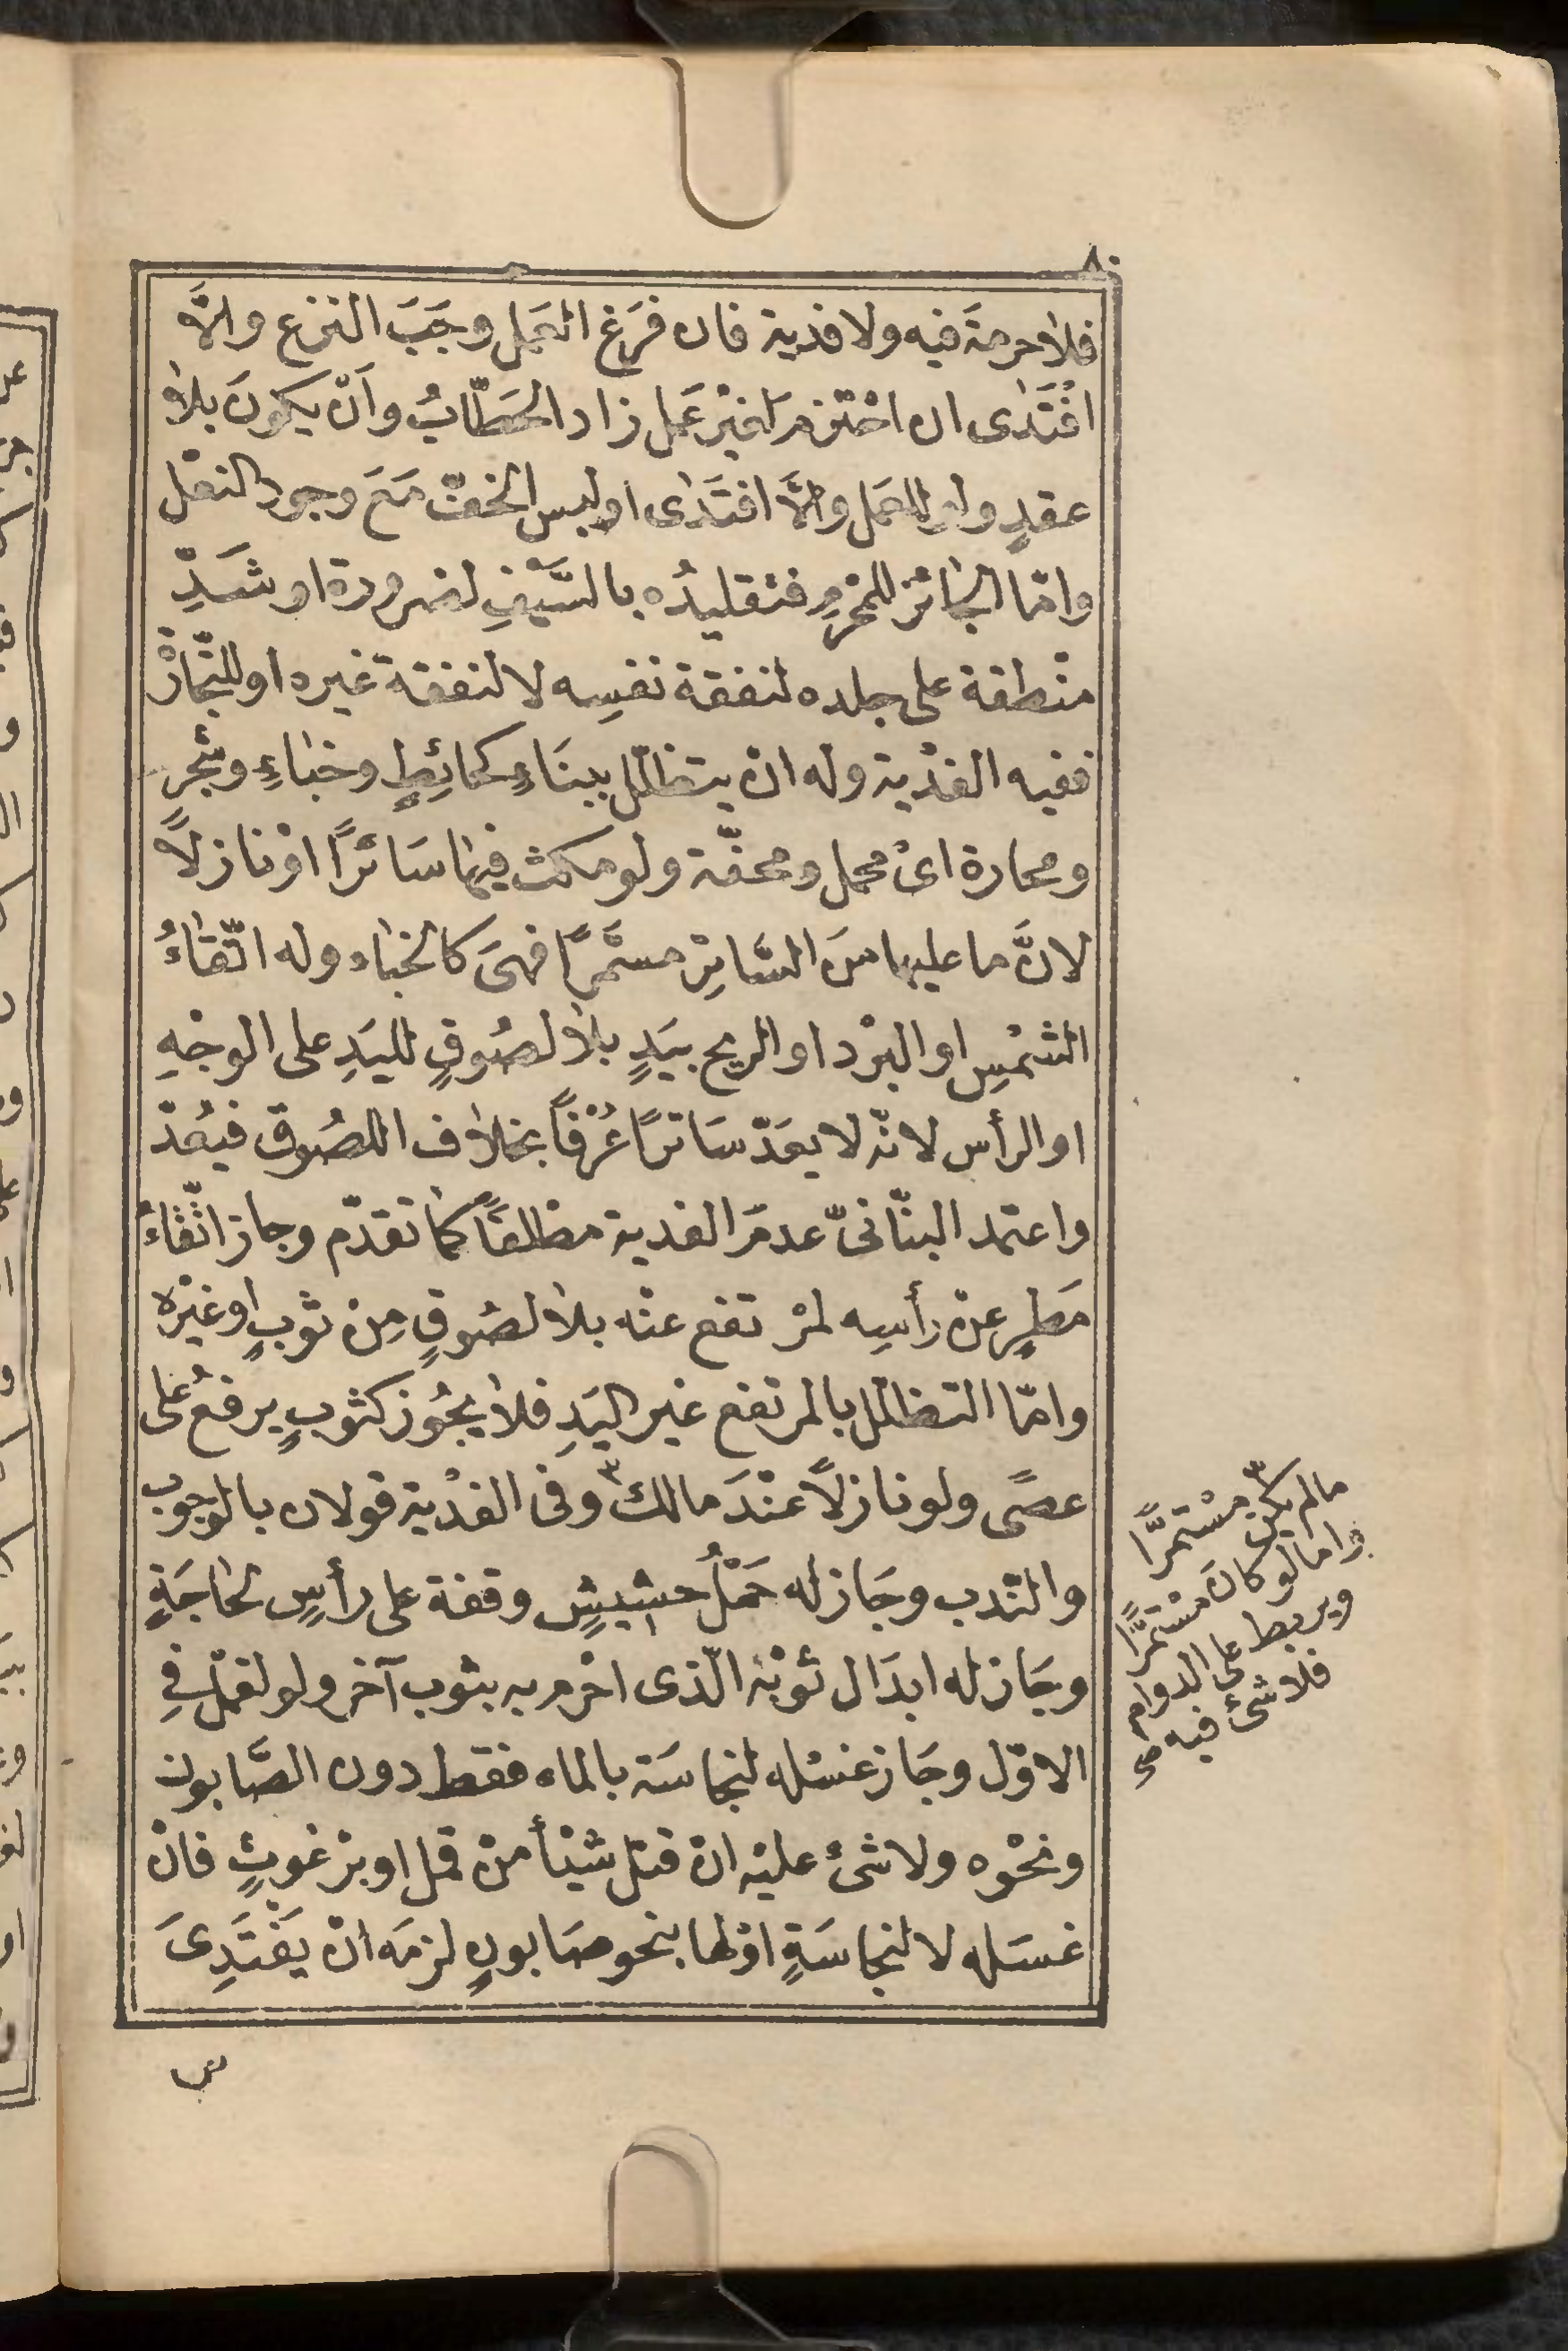 ٨٠
فلا حرمةَ فيه ولا فدية فان فرَغ العَمل وجَبَ النزع والاَّ
افْتَدٰى ان احْتزمَ لغيْر عَمل زاد الحَطّابُ واَنْ يكونَ بلا
عقدٍ ولو للعَمل والاَّ افتَدٰى او لبس الخفّ مَعَ وجود النعْل
وامّا الجائز للمُحْرمِ فتقليدُه بالسَّيْفِ لضرورة او شَدِّ
منْطقة على جلده لنفقة نفسِه لا لنفقة غيره او للتّجارْ
ففيه الفدْية وله انْ يتظلّل ببنَاءٍ كحائِطٍ وخباءٍ وشجرٍ
ومحارة اىْ محمل ومحفّة ولو مكث فيها سَائرًا اوْ نازلاً
لانَّ ما عليها منَ السَّاتِرِ مستَمرًّا فهىَ كالخباء وله اتّقاءُ
الشمْسِ او البرْد او الريح بيَدٍ بلا لصُوقٍ لليَدِ على الوجْهِ
او الرأس لانّه لا يعَدّ سَاترًا عُرْفًا بخلاف اللصُوق فيعُدّ
واعتمد البنّانىّ عدمَ الفدية مطلقًا كما تقدّم وجاز اتّقاءُ
مَطرٍ عنْ رأسِه لمرْتفع عنْه بلا لصُوقٍ مِنْ ثوْبٍ او غيْره
وامّا التظلّل بالمرتفع غير اليَدِ فلا يجُوز كثوبٍ يرفعُ على
عصًى ولو نازلاً عنْدَ مالك٣ وفى الفدْية قولان بالوجوب
والنّدب وجَاز له حَمْلُ حشيشٍ وقفة على رأسٍ لحاجَةٍ
وجَاز له ابدَال ثوْبه الّذى احْرم به بثوب آخر ولو لقمْل فِى
الاوّل وجَاز غسْله لنجاسَة بالماء فقط دون الصَّابون
ونحْوه ولا شئ عليْه انْ قتل شيْأ منْ قمل او برْغوثٍ فانْ
غسَله لا لنجاسَةٍ اوْ لها بنحو صَابونٍ لزمَه انْ يَفْتَدِىَ
٣
مالم يكن مسْتمرًّا
واما لو كانَ مسْتمرًّا
ويربط على الدوام
فلا شئ فيه صح